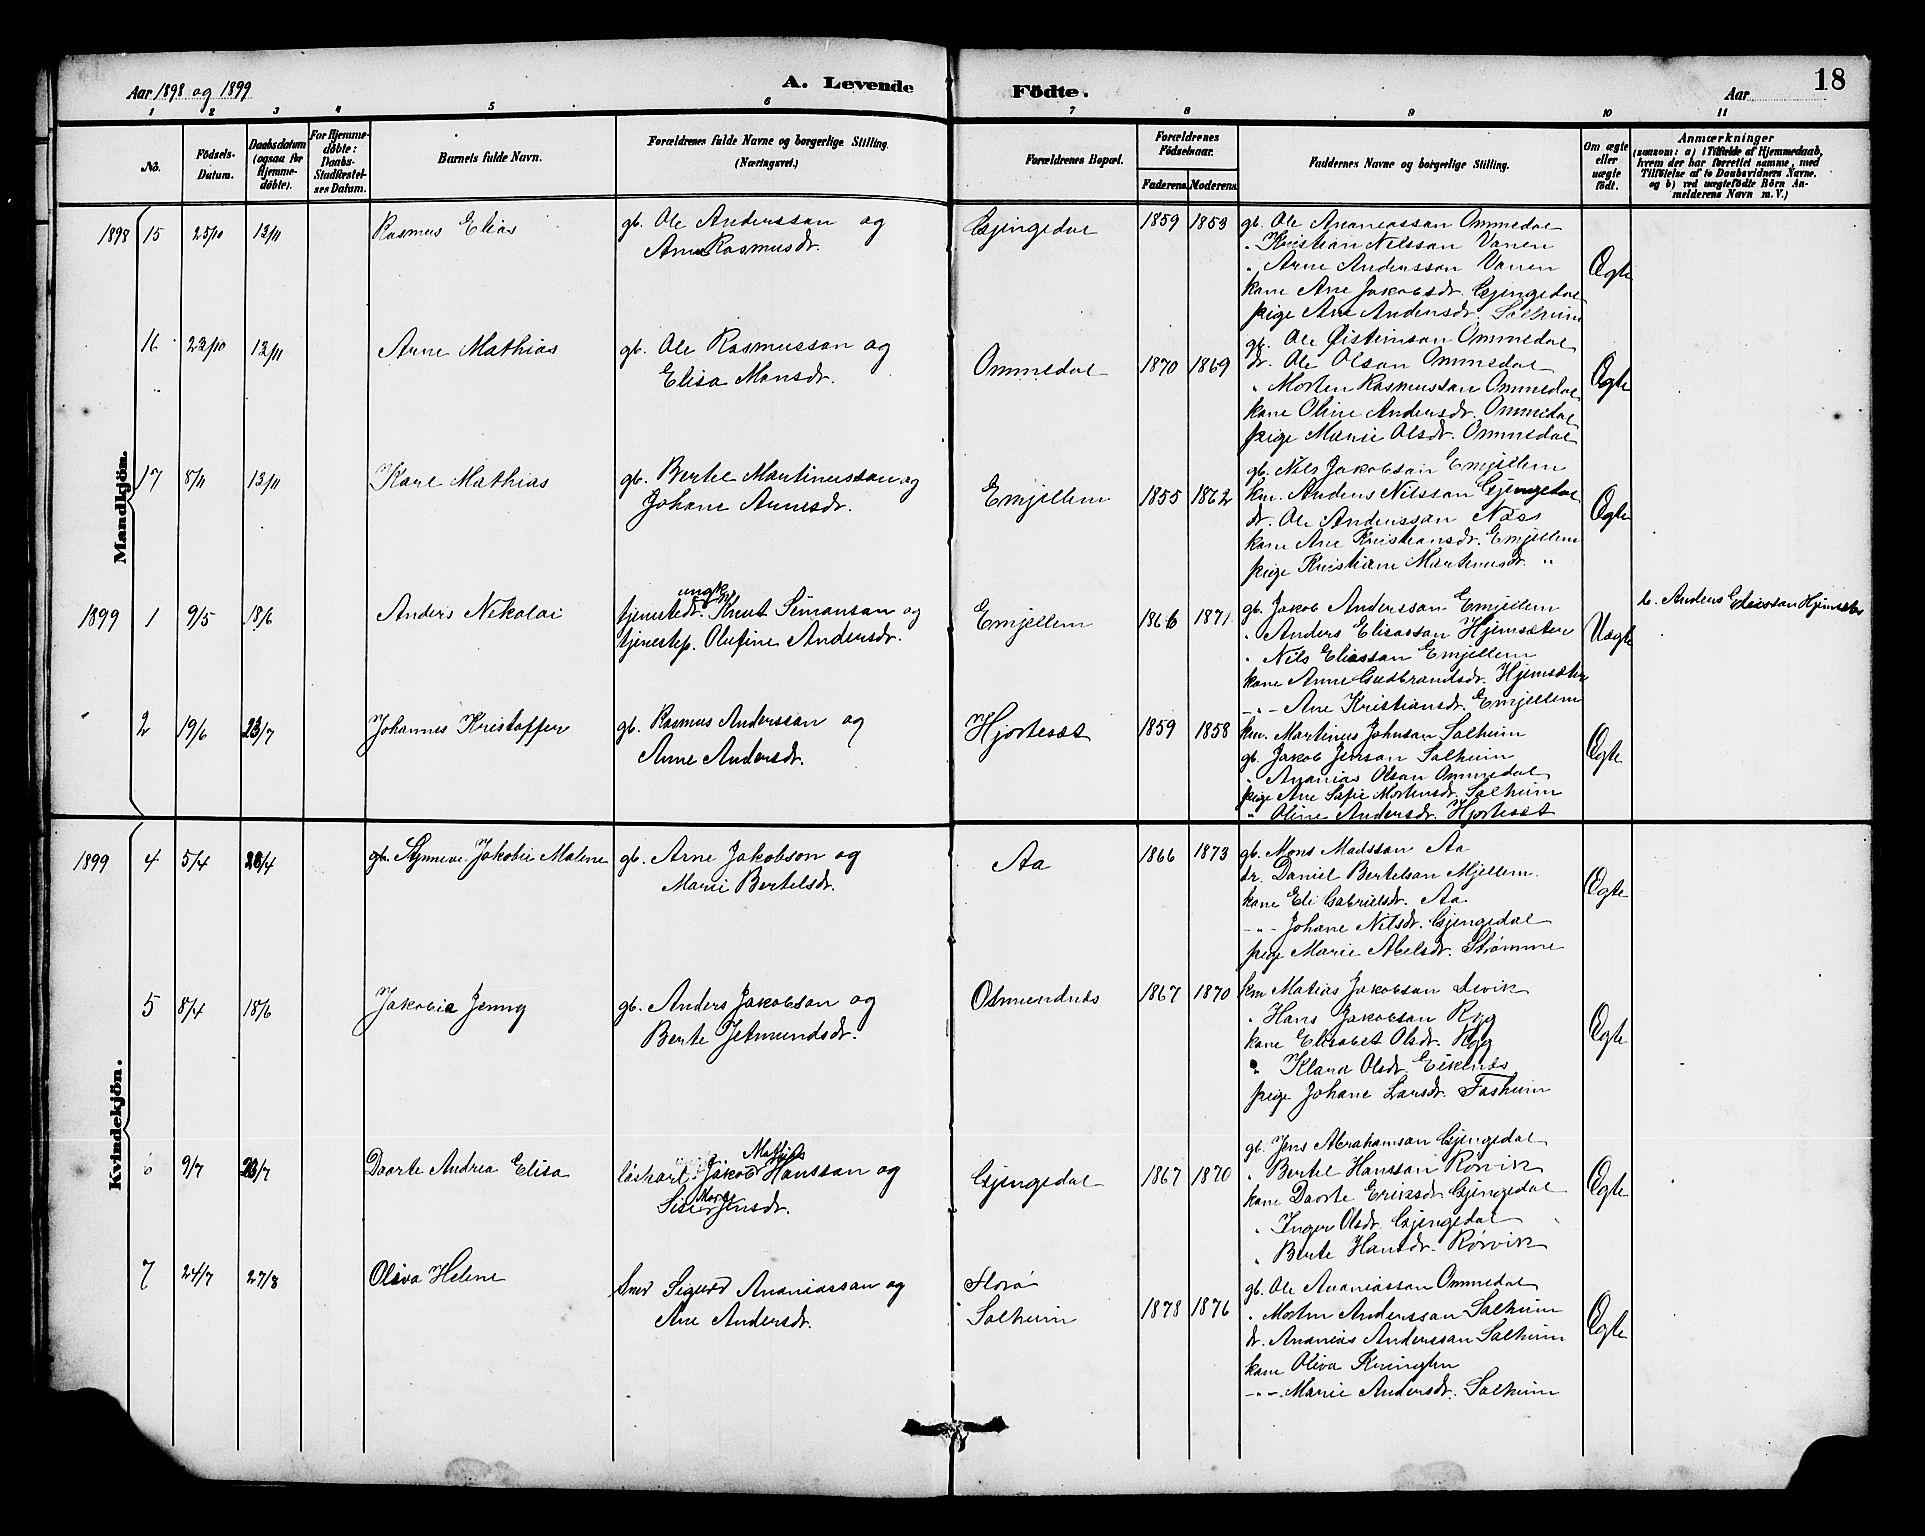 Aar 1898 og 1899
A. Levende
Födte.
Aar
18
1 2 3 4 5 6 7 8 9 10 11
No.
Födsels-Datum.
Daabsdatum (ogsaa for Hjemme-døbte).
For Hjemme-døbte: Daabs-Stadfæstel-ses Datum.
Barnets fulde Navn.
Forældrenes fulde Navne og borgerlige Stilling. (Næringsvei.)
Forældrenes Bopæl.
Forældrenes Födselsaar.
Faderens. Moderens.
Faddernes Navne og borgerlige Stilling.
Om ægte eller uægte födt.
Anmærkninger
(saasom: a) i Tilfælde af Hjemmedaab, hvem der har forrettet samme, med Tilföielse af to Daabsvidners Navne. og b) ved uægtefödte Börn An-melderens Navn m. V.)
Mandkjön.
1898 15 25/10 13/11 Rasmus Elias
gb. Ole Anderssan og
Ane Rasmusdr.
Gjengedal 1859 1853
gb. Ole Ananiassan Ommedal
" Kristian Nilssan Vanen
" Arne Anderssan Vanen
kone Ane Jakobsdr. Gjengedal
pige Ane Andersdr. Solheim
Ægte
16 23/10 13/11 Arne Mathias
gb. Ole Rasmussan og
Elisa Monsdr.
Ommedal 1870 1869
gb. Ole Øisteinsan Ommedal
dr. Ole Olsan Ommedal
" Morten Rasmussan Ommedal
kone Oline Andersdr. Ommedal
pige Marie Olsdr. Ommedal
Ægte
17 8/11 13/11 Karl Mathias
gb. Bertel Martinussan og
Johane Arnesdr.
Emjellem 1855 1862
gb. Nils Jakobsan Emjellem
km. Anders Nilssan Gjengedal
dr. Ole Anderssan Næs
kone Ane Kristiansdr. Emjellem
pige Kristiane Martinusdr. "
Ægte
1899 1 9/5 18/6 Anders Nikolai
ungk.
tjenestedr. Knut Simonsan og
tjenestep. Olufine Andersdr.
Emjellem 1866 1871
gb. Jakob Anderssan Emjellem
" Anders Eliassan Hjemsæter
" Nils Eliassan Emjellem
kone Anne Gudbrandsdr. Hjemsæter
-"- Ane Kristiansdr. Emjellem
Uægte
Anders Eliassan Hjemsæter
2 19/6 23/7 Johannes Kristoffer
gb. Rasmus Anderssan og
Anne Andersdr.
Hjortesæt 1859 1858
km. Martinus Johnsan Solheim
gb. Jakob Jensan Solheim
" Ananias Olsan Ommedal
pige Ane Sofie Mortensdr. Solheim
" Oline Andersdr. Hjortesæt
Ægte
Kvindekjön.
1899 4 5/4 23/4 gb. Synneve Jakobie Malene
gb. Arne Jakobson og
Marie Bertelsdr.
Aa 1866 1873
gb. Mons Madssan Aa
dr. Daniel Bertelsan Mjellem.
kone Eli Gabrielsdr. Aa
-"- Johane Nilsdr. Gjengedal
pige Marie Abelsdr. Strømme
Ægte
5 8/4 18/6 Jakobie Jenny
gb. Anders Jakobsan og
Berte Jetmundsdr.
Osmundnes 1867 1870
km Matias Jakobsan
" Hans Jakobsan Rygg
kone Elisabet Olsdr. Rygg
" Klara Olsdr. Eikenæs
pige Johane Larsdr. Fosheim
Ægte
6 9/7 23/7 Daarte Andrea Elisa
Mathias
løskarl Jakob Hanssan og
Marte
Sisie Jensdr.
Gjengedal 1867 1870
gb. Jens Abrahamsan Gjengedal
" Bertel Hanssan Rørvik
kone Daarte Eriksdr. Gjengedal
" Inger Olsdr. Gjengedal
" Berte Hansdr. Rørvik
Ægte
7 24/7 27/8 Oliva Helene
Smed Sigurd Ananiassan og
Ane Andersdr.
Florø
Solheim
1878 1876
gb. Ole Ananiassan Ommedal
" Morten Anderssan Solheim
dr. Ananias Anderssan Solheim
kone Oliva
-"- Marie Andersdr. Solheim
Ægte